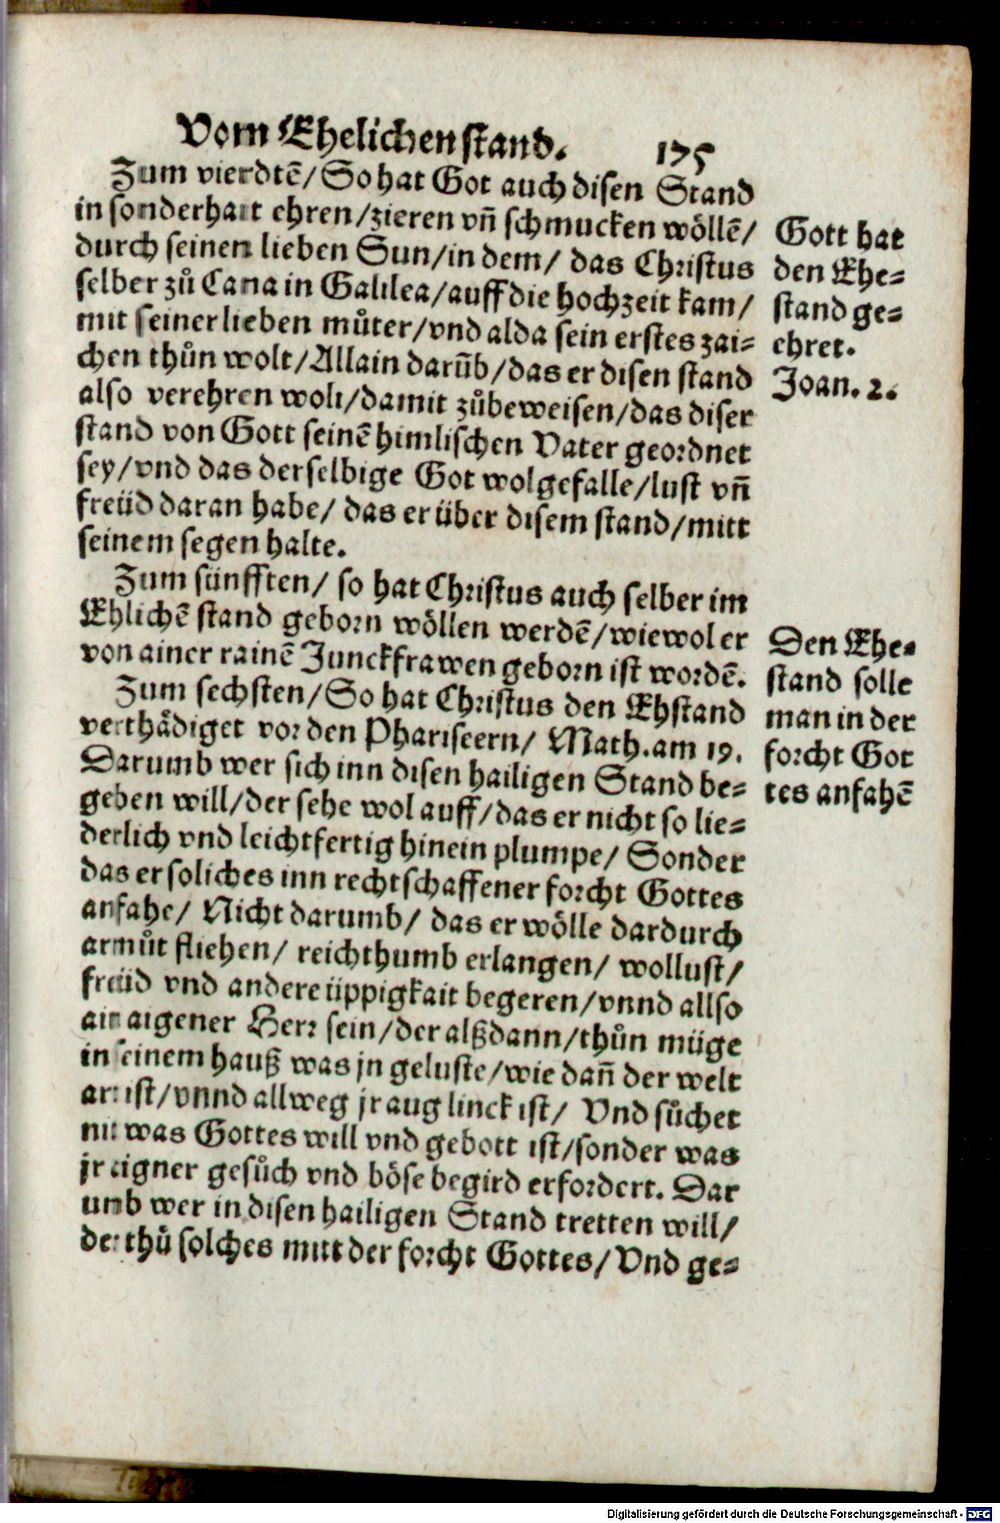 Vom Ehelichen stand. 175
Zum vierdtē/ So hat Got auch disen Stand
in sonderhait ehren/ zieren vñ schmucken wöllē/
durch seinen lieben Sun/ in dem/ das Christus
selber zů Cana in Galilea/ auff die hochzeit kam/
mit seiner lieben můter/ vnd alda sein erstes zai-
chen thůn wolt/ Allain darūb/ das er disen stand
also verehren wolt/ damit zůbeweisen/ das diser
stand von Gott seinē himlischen Vater geordnet
sey/ vnd das derselbige Got wolgefalle/ lust vñ
freüd daran habe/ das er über disem stand/ mitt
seinem segen halte.
Gott hat
den Ehe-
stand ge-
ehret.
Joan. 2.
Zum fünfften/ so hat Christus auch selber im
Ehlichē stand geborn wöllen werdē/ wiewol er
von ainer rainē Junckfrawen geborn ist wordē.
Zum sechsten/ So hat Christus den Ehstand
verthädiget vor den Phariseern/ Math. am 19.
Darumb wer sich inn disen hailigen Stand be-
geben will/ der sehe wol auff/ das er nicht so lie-
derlich vnd leichtfertig hinein plumpe/ Sonder
das er soliches inn rechtschaffener forcht Gottes
anfahe/ Nicht darumb/ das er wölle dardurch
armůt fliehen/ reichthumb erlangen/ wollust/
freüd vnd andere üppigkait begeren/ vnnd allso
ain aigener Herr sein/ der alßdann/ thůn müge
in seinem hauß was jn geluste/ wie dañ der welt
art ist/ vnnd allweg jr aug linck ist/ Vnd sůchet
nit was Gottes will vnd gebott ist/ sonder was
jr aigner gesůch vnd böse begird erfordert. Dar
umb wer in disen hailigen Stand tretten will/
der thů solches mitt der forcht Gottes/ Vnd ge-
Den Ehe-
stand solle
man in der
forcht Got
tes anfahē
Digitalisierung gefördert durch die Deutsche Forschungsgemeinschaft - DFG